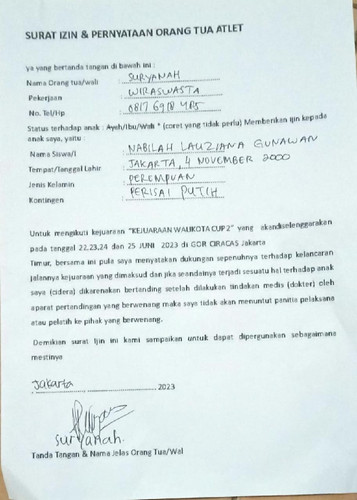 SURAT IZIN & PERNYATAAN ORANG TUA ATLET
ya yang bertanda tangan di bawah ini :
Nama Orang tua/wali : SURYANAH
Pekerjaan : WIRASWASTA
No. Tel/Hp : 0817 6918 485
Status terhadap anak : Ayah/Ibu/Wali * (coret yang tidak perlu) Memberikan ijin kepada
anak saya, yaitu :
Nama Siswa/i : NABILAH LAUZIANA GUNAWAN
Tempat/Tanggal Lahir : JAKARTA, 4 NOVEMBER 2000
Jenis Kelamin : PEREMPUAN
Kontingen : PERISAI PUTIH
Untuk mengikuti kejuaraan "KEJUARAAN WALIKOTA CUP 2" yang akandiselenggarakan
pada tanggal 22,23,24 dan 25 JUNI 2023 di GOR CIRACAS Jakarta
Timur, bersama ini pula saya menyatakan dukungan sepenuhnya terhadap kelancaran
jalannya kejuaraan yang dimaksud dan jika seandainya terjadi sesuatu hal terhadap anak
saya (cidera) dikarenakan bertanding setelah dilakukan tindakan medis (dokter) oleh
aparat pertandingan yang berwenang maka saya tidak akan menuntut panitia pelaksana
atau pelatih ke pihak yang berwenang.
Demikian surat Ijin ini kami sampaikan untuk dapat dipergunakan sebagaimana
mestinya
Jakarta, 2023
suryanah.
Tanda Tangan & Nama Jelas Orang Tua/Wal